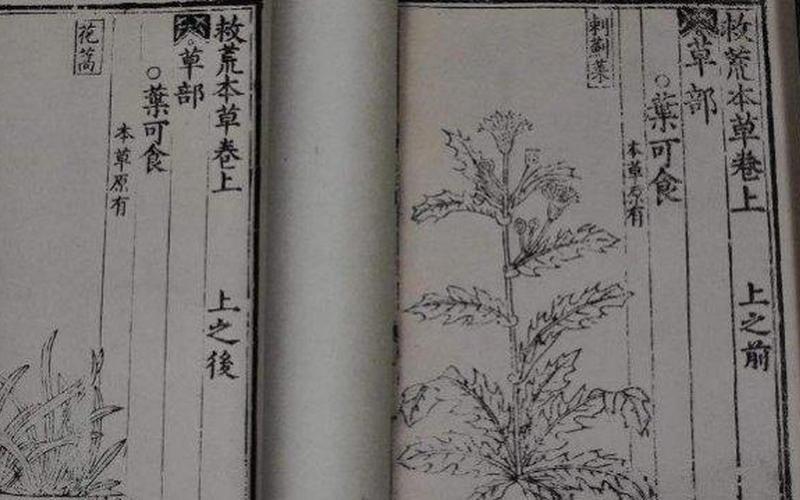 救荒本草卷上　上之前
草部
○葉可食
本草原有
刺薊菜
救荒本草卷上　上之後
草部
○葉可食
本草原有
花蒿